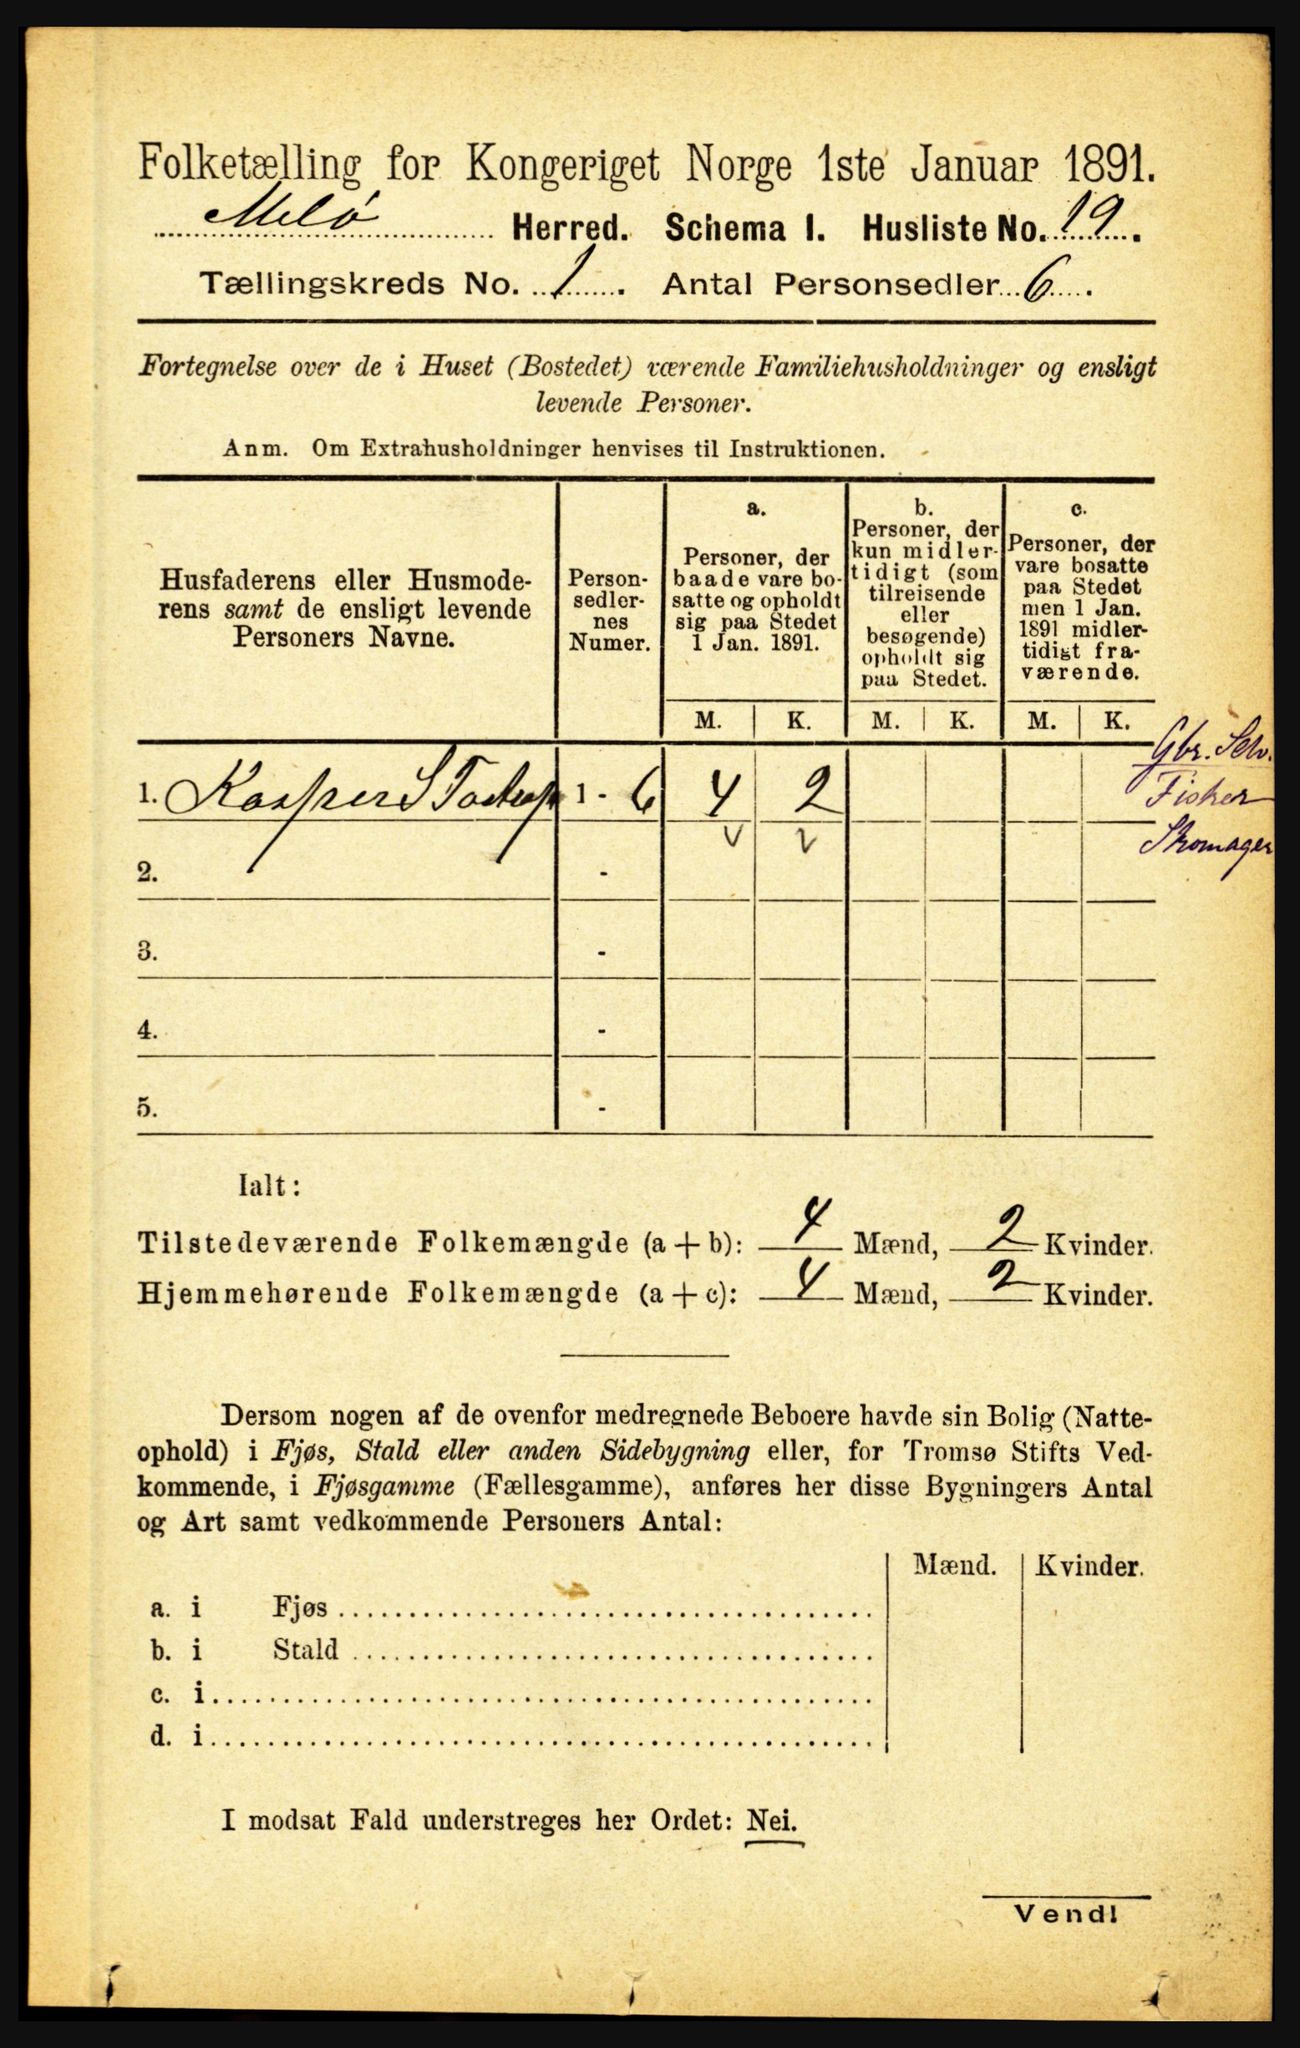 Folketælling for Kongeriget Norge 1ste Januar 1891.
Melø Herred. Schema I. Husliste No. 19.
Tællingskreds No. 1. Antal Personsedler 6.
Fortegnelse over de i Huset (Bostedet) værende Familiehusholdninger og ensligt
levende Personer.
Anm. Om Extrahusholdninger henvises til Instruktionen.
Husfaderens eller Husmode-
rens samt de ensligt levende
Personers Navne.
Person-
sedler-
nes
Numer.
a.
Personer, der
baade vare bo-
satte og opholdt
sig paa Stedet
1 Jan. 1891.
b.
Personer, der
kun midler-
tidigt (som
tilreisende
eller
besøgende)
opholdt sig
paa Stedet.
c.
Personer, der
vare bosatte
paa Stedet
men 1 Jan.
1891 midler-
tidigt fra-
værende.
M. K. M. K. M. K.
Gbr. Selv.
1. Kasper S 1 - 6 4 2 Fisker
v v Skomager
2. -
3. -
4. -
5. -
Ialt:
Tilstedeværende Folkemængde (a + b): 4 Mænd, 2 Kvinder.
Hjemmehørende Folkemængde (a + c): 4 Mænd, 2 Kvinder.
Dersom nogen af de ovenfor medregnede Beboere havde sin Bolig (Natte-
ophold) i Fjøs, Stald eller anden Sidebygning eller, for Tromsø Stifts Ved-
kommende, i Fjøsgamme (Fællesgamme), anføres her disse Bygningers Antal
og Art samt vedkommende Personers Antal:
Mænd. Kvinder.
a. i Fjøs
b. i Stald
c. i
d. i
I modsat Fald understreges her Ordet: Nei.
Vend!